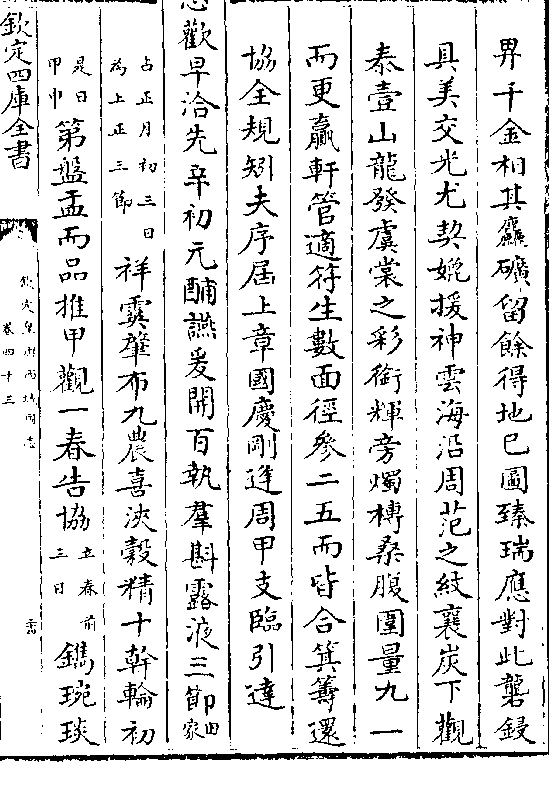 畀千金相其麤礦留餘得地已圖臻瑞應對此礱錽
具美交光尤契媲援神雲海沿周范之紋裹炭下觀
泰壹山龍發虞裳之彩銜輝旁燭榑桑腹圍量九一
而更贏軒管適符生數面徑參二五而皆合箕籌還
協全規矧夫序屆上章國慶剛逢周甲支臨引達
歡早洽先辛初元酺讌爰開百執羣斟露液三節田家
占正月初三日為上正三節祥霙肇布九農喜浹穀精十幹輪初
是日甲申第盤盂而品推甲觀一春告協立春前三日鐫琬琰
欽定四庫全書
欽定皇輿西域圖志
卷四十三